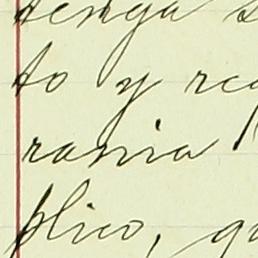 tenga s
to y rec
rania
plico, qu